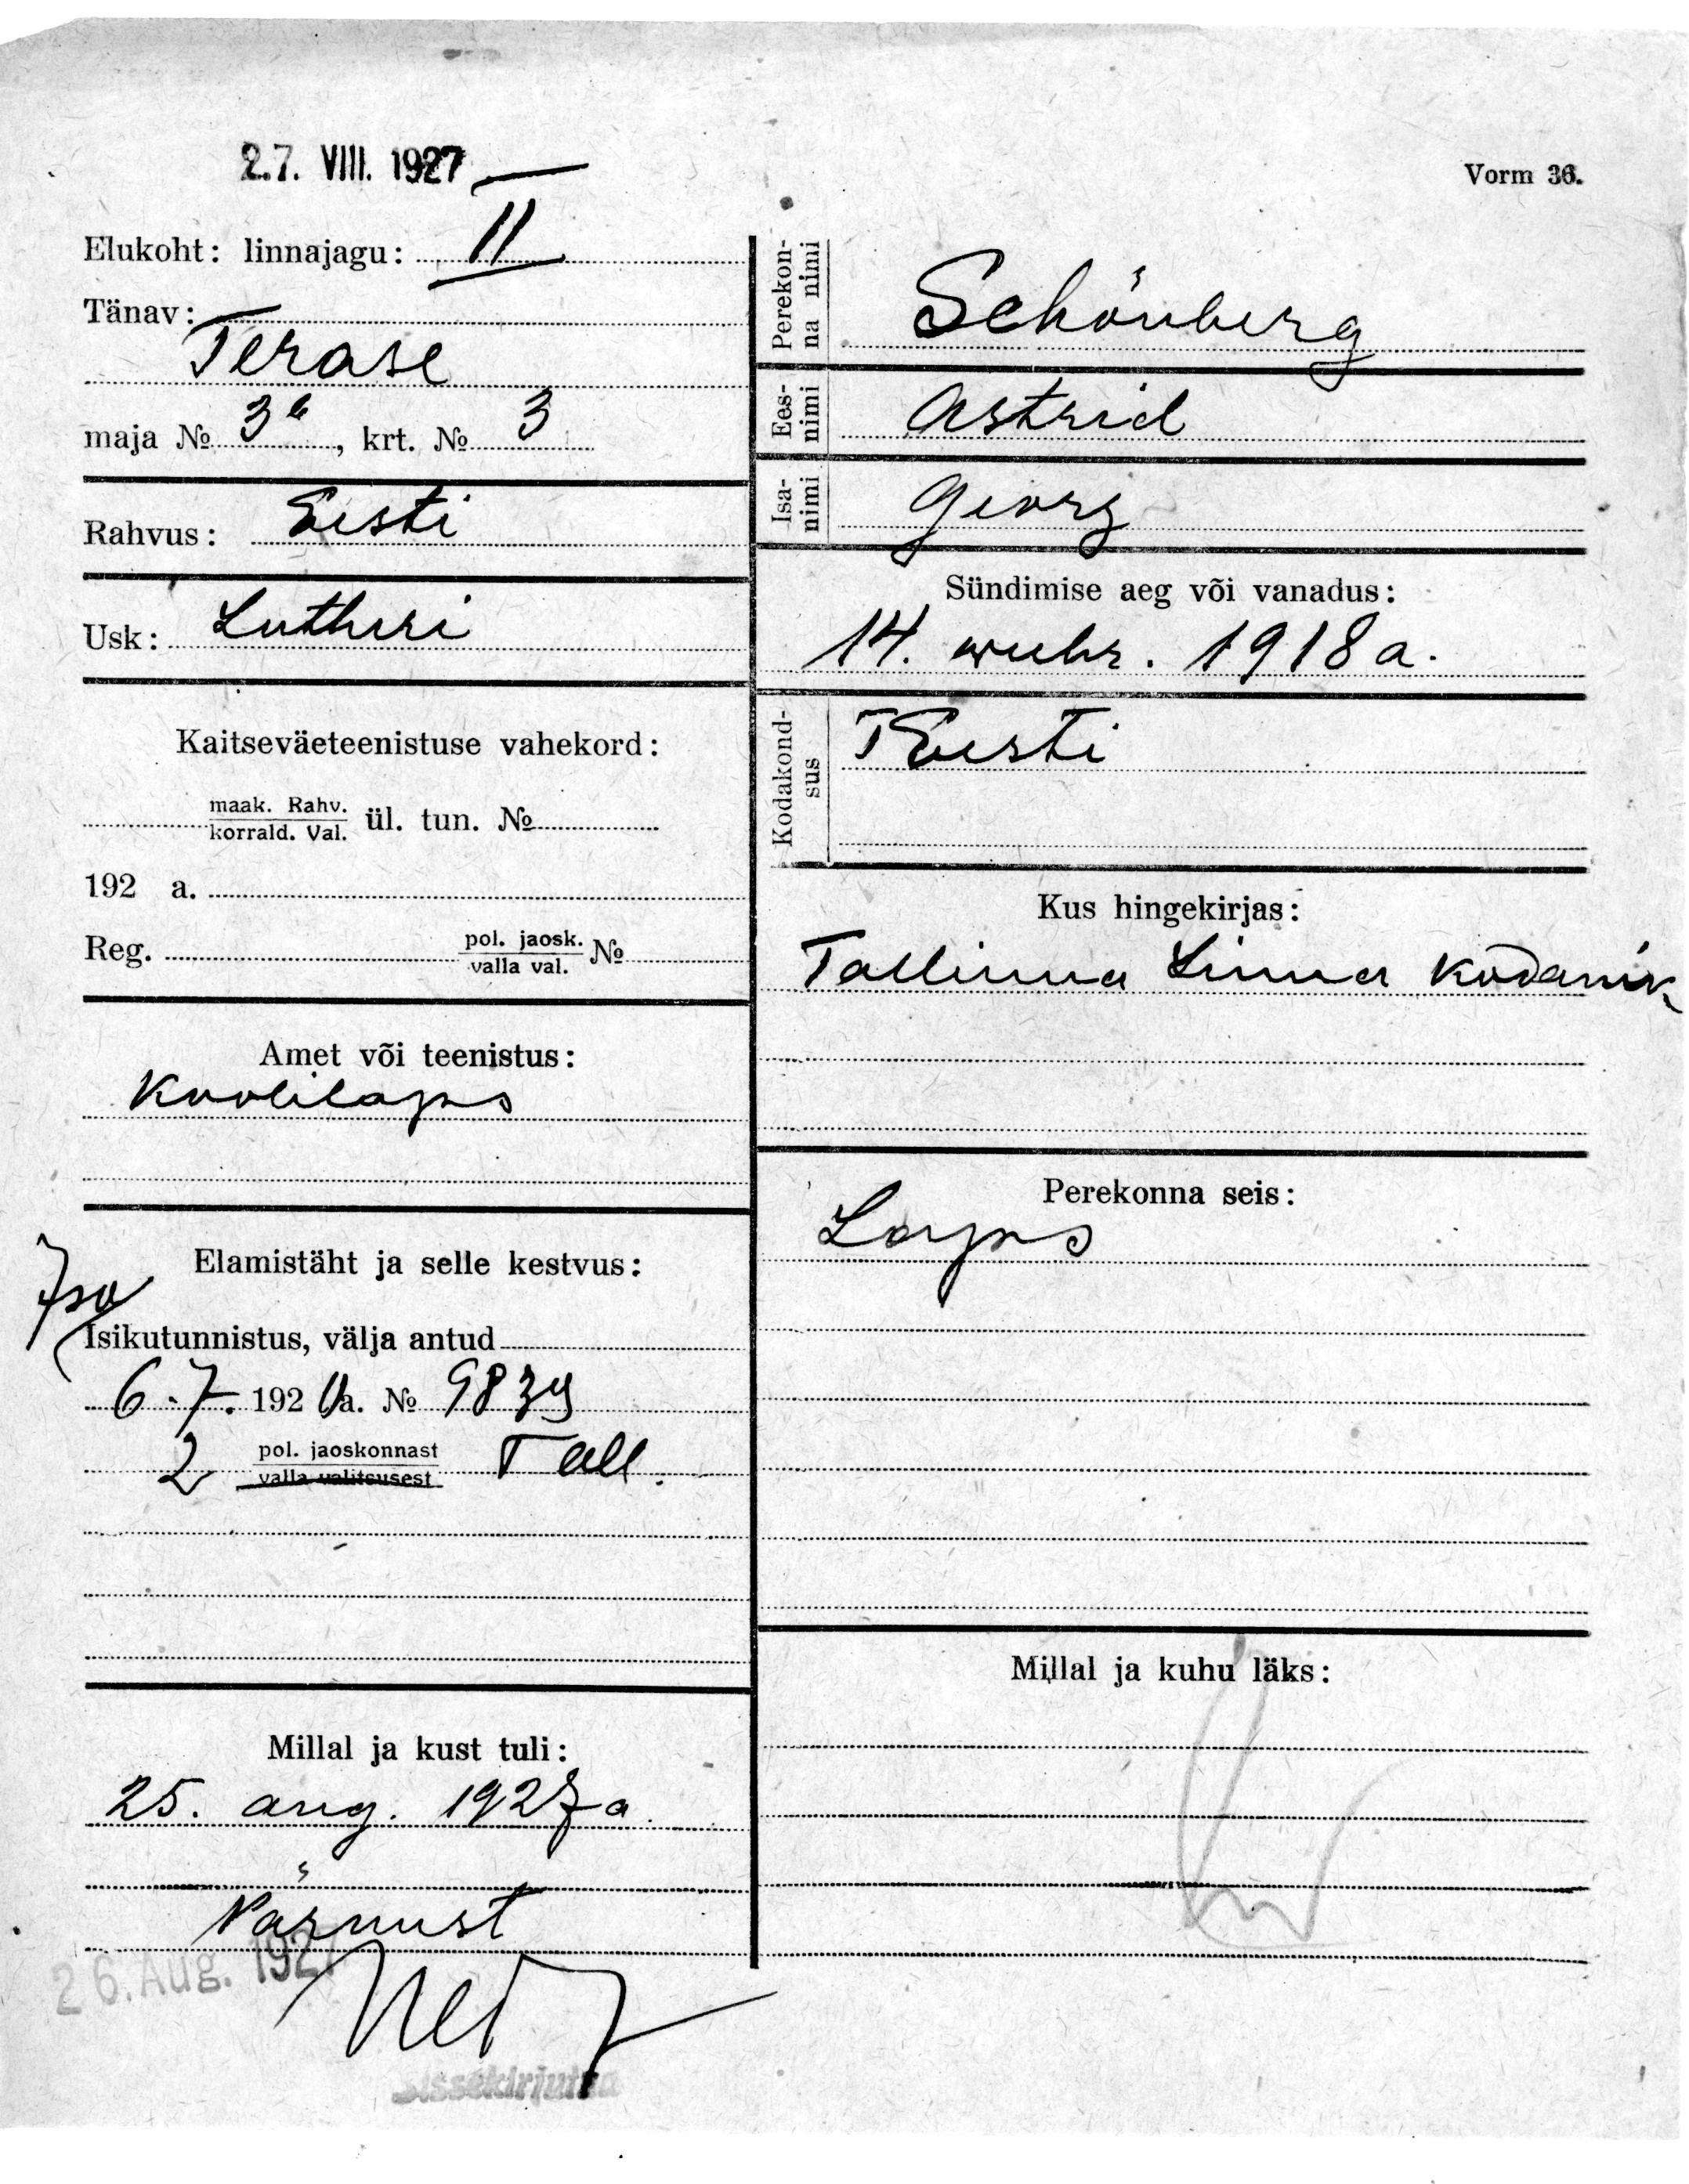 27. VIII. 1927
Vorm 36.
Elukoht: linnajagu: II
Tänav:
Terase
maja № 3ᵇ, krt. № 3
Rahvus: Eesti
Usk: Lutheri
Kaitseväeteenistuse vahekord:
maak. Rahv.
korrald. Val. ül. tun. №
192 a.
Reg. pol. jaosk.
valla val. №
Amet või teenistus:
Koolilaps
Elamistäht ja selle kestvus:
Isa
Isikutunnistus, välja antud
6.7. 192 a. № 9839
2 pol. jaoskonnast Tall.
valla valitsusest
Millal ja kust tuli:
25. aug. 1927 a
Pärnust
26. Aug. 1927
Sissekirjutaja
Perekon-
na nimi
Schönberg
Ees-
nimi
Astrid
Isa-
nimi
Georg
Sündimise aeg või vanadus:
14. 1918 a.
Kodakond-
sus
Eesti
Kus hingekirjas:
Tallinna Linna Kodanik
Perekonna seis:
Laps
Millal ja kuhu läks: